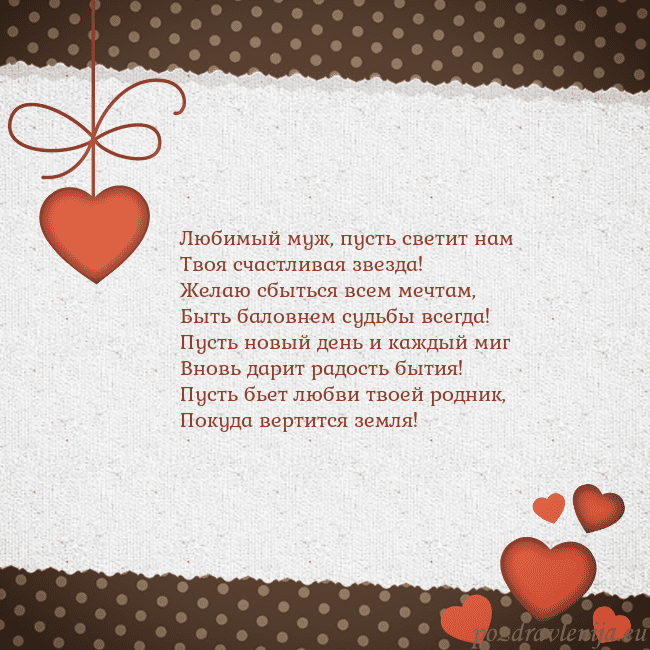 Любимый муж, пусть светит нам
Твоя счастливая звезда!
Желаю сбыться всем мечтам,
Быть баловнем судьбы всегда!
Пусть новый день и каждый миг
Вновь дарит радость бытия!
Пусть бьет любви твоей родник,
Покуда вертится земля!
pozdravlenija.eu